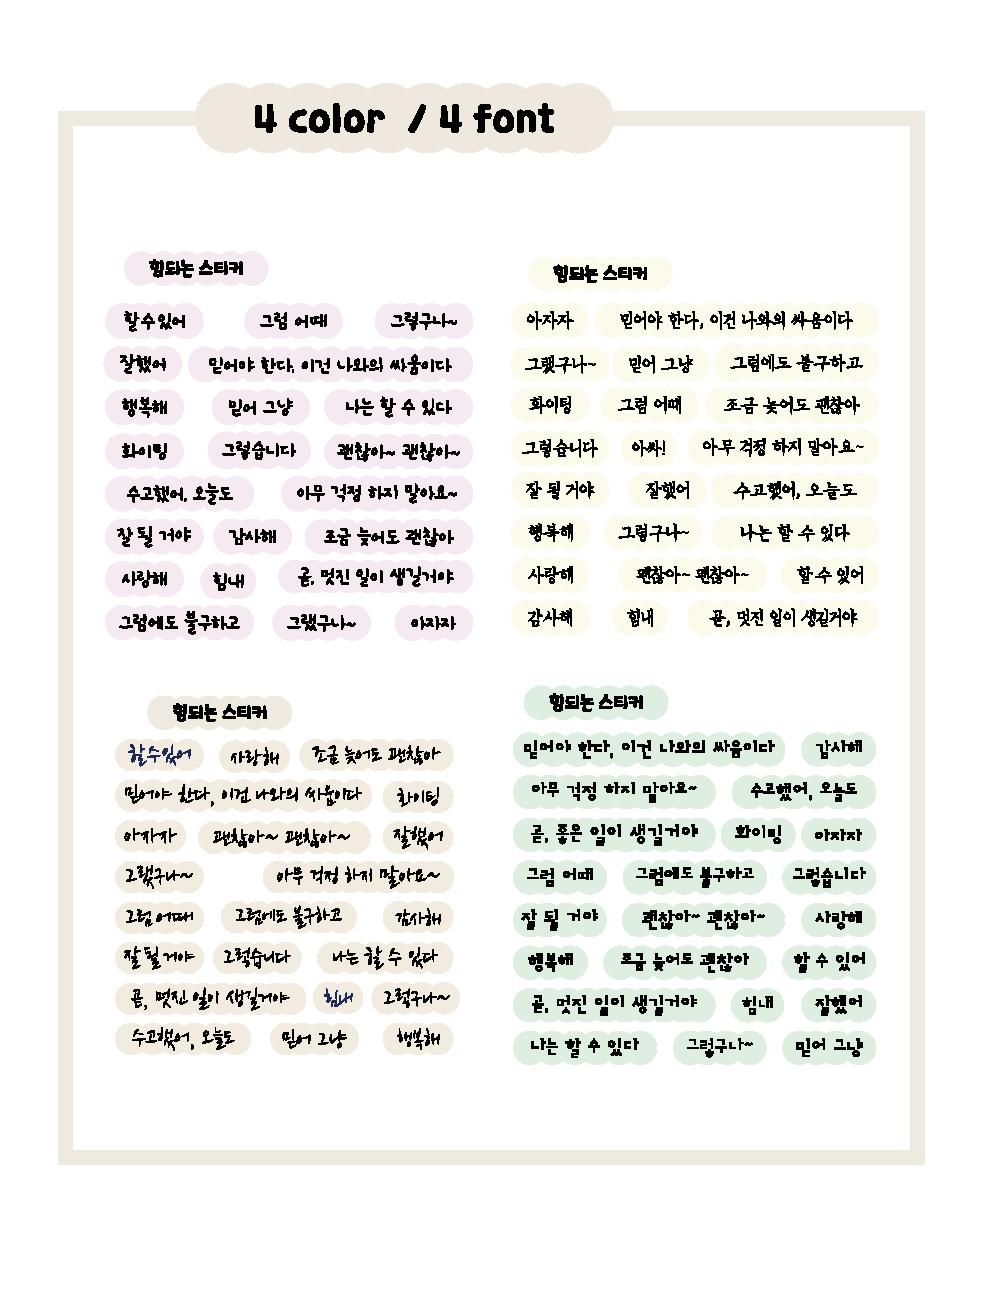 4 color / 4 font
힘되는 스티커
할수있어 그럼 어때 그렇구나~
잘했어 믿어야 한다, 이건 나와의 싸움이다
행복해 믿어 그냥 나는 할 수 있다
화이팅 그렇습니다 괜찮아~ 괜찮아~
수고했어, 오늘도 아무 걱정 하지 말아요~
잘 될 거야 감사해 조금 늦어도 괜찮아
사랑해 힘내 곧, 멋진 일이 생길거야
그럼에도 불구하고 그랬구나~ 아자자
힘되는 스티커
아자자 믿어야 한다, 이건 나와의 싸움이다
그랬구나~ 믿어 그냥 그럼에도 불구하고
화이팅 그럼 어때 조금 늦어도 괜찮아
그렇습니다 아싸! 아무 걱정 하지 말아요~
잘 될 거야 잘했어 수고했어, 오늘도
행복해 그렇구나~ 나는 할 수 있다
사랑해 괜찮아~ 괜찮아~ 할 수 있어
감사해 힘내 곧, 멋진 일이 생길거야
힘되는 스티커
할수있어 사랑해 조금 늦어도 괜찮아
믿어야 한다, 이건 나와의 싸움이다 화이팅
아자자 괜찮아~ 괜찮아~ 잘했어
그랬구나~ 아무 걱정 하지 말아요~
그럼 어때 그럼에도 불구하고 감사해
잘 될 거야 그렇습니다 나는 할 수 있다
곧, 멋진 일이 생길거야 힘내 그렇구나~
수고했어, 오늘도 믿어 그냥 행복해
힘되는 스티커
믿어야 한다, 이건 나와의 싸움이다 감사해
아무 걱정 하지 말아요~ 수고했어, 오늘도
곧, 좋은 일이 생길거야 화이팅 아자자
그럼 어때 그럼에도 불구하고 그렇습니다
잘 될 거야 괜찮아~ 괜찮아~ 사랑해
행복해 조금 늦어도 괜찮아 할 수 있어
곧, 멋진 일이 생길거야 힘내 잘했어
나는 할 수 있다 그렇구나~ 믿어 그냥